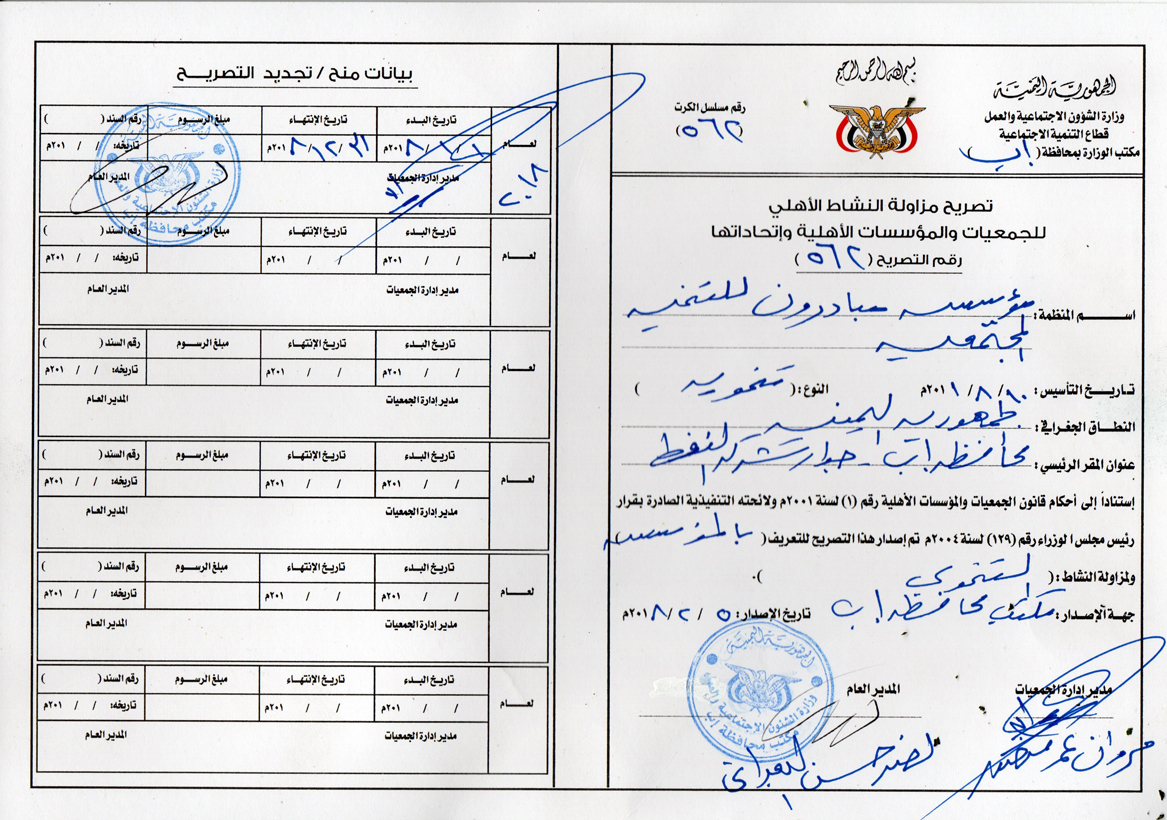 بسم الله الرحمن الرحيم
الجمهورية اليمنية
وزارة الشؤون الاجتماعية والعمل
قطاع التنمية الاجتماعية
مكتب الوزارة بمحافظة ( اب )
رقم مسلسل الكرت
(٥٦٢)
تصريح مزاولة النشاط الأهلي
للجمعيات والمؤسسات الأهلية وإتحاداتها
رقم التصريح (٥٦٢)
اســم المنظمة: مؤسسه مبادرون للتنميه
المجتمعيه
تاريخ التأسيس: ١٠/ ٨/ ٢٠١١م النوع: ( تنمويه )
النطاق الجغرافي: جمهوريه اليمنيه
عنوان المقر الرئيسي: محافظه اب - جوار شركه النفط
إستناداً إلى أحكام قانون الجمعيات والمؤسسات الأهلية رقم (١) لسنة ٢٠٠١م ولائحته التنفيذية الصادرة بقرار
رئيس مجلس الوزراء رقم (١٢٩) لسنة ٢٠٠٤م تم إصدار هذا التصريح للتعريف ( بالمؤسسه )
ولمزاولة النشاط: ( التنموي ).
جهة الإصدار: مكتب محافظه اب تاريخ الإصدار: ٥ / ٢ /٢٠١٨م
مدير إدارة الجمعيات المدير العام
مروان عمر
حسن
الجمهورية اليمنية
وزارة الشئون الاجتماعية والعمل
مكتب محافظة إب
بيانات منح / تجديد التصريـــح
لعـــام تاريخ البدء تاريخ الإنتهاء مبلغ الرسوم رقم السند ( )
٢٠١٨ / ١ / ٢٠١٨م ٣١/ ١٢/ ٢٠١٨م تاريخه: / / ٢٠١م
٢٠١٨ مدير إدارة الجمعيات المدير العام
الجمهورية اليمنية
وزارة الشئون الاجتماعية والعمل
مكتب محافظة إب
لعـــام تاريخ البدء تاريخ الإنتهاء مبلغ الرسوم رقم السند ( )
/ / ٢٠١م / / ٢٠١م تاريخه: / / ٢٠١م
مدير إدارة الجمعيات المدير العام
لعـــام تاريخ البدء تاريخ الإنتهاء مبلغ الرسوم رقم السند ( )
/ / ٢٠١م / / ٢٠١م تاريخه: / / ٢٠١م
مدير إدارة الجمعيات المدير العام
لعـــام تاريخ البدء تاريخ الإنتهاء مبلغ الرسوم رقم السند ( )
/ / ٢٠١م / / ٢٠١م تاريخه: / / ٢٠١م
مدير إدارة الجمعيات المدير العام
لعـــام تاريخ البدء تاريخ الإنتهاء مبلغ الرسوم رقم السند ( )
/ / ٢٠١م / / ٢٠١م تاريخه: / / ٢٠١م
مدير إدارة الجمعيات المدير العام
لعـــام تاريخ البدء تاريخ الإنتهاء مبلغ الرسوم رقم السند ( )
/ / ٢٠١م / / ٢٠١م تاريخه: / / ٢٠١م
مدير إدارة الجمعيات المدير العام